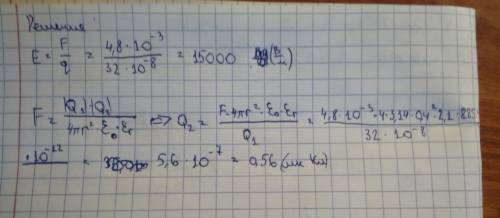 Решение
E = F/q = 4,8·10⁻³/32·10⁻⁸ = 15000 (В/м)
F = |Q₁|·|Q₂|/4πr²·ε₀·εᵣ => Q₂ = F·4πr²·ε₀·εᵣ/Q₁ = 4,8·10⁻³·4·3,14·0,4²·2,1·8,85·/32·10⁻⁸
·10⁻¹²/ = 5,6·10⁻⁷ = 0,56 (мк Кл)